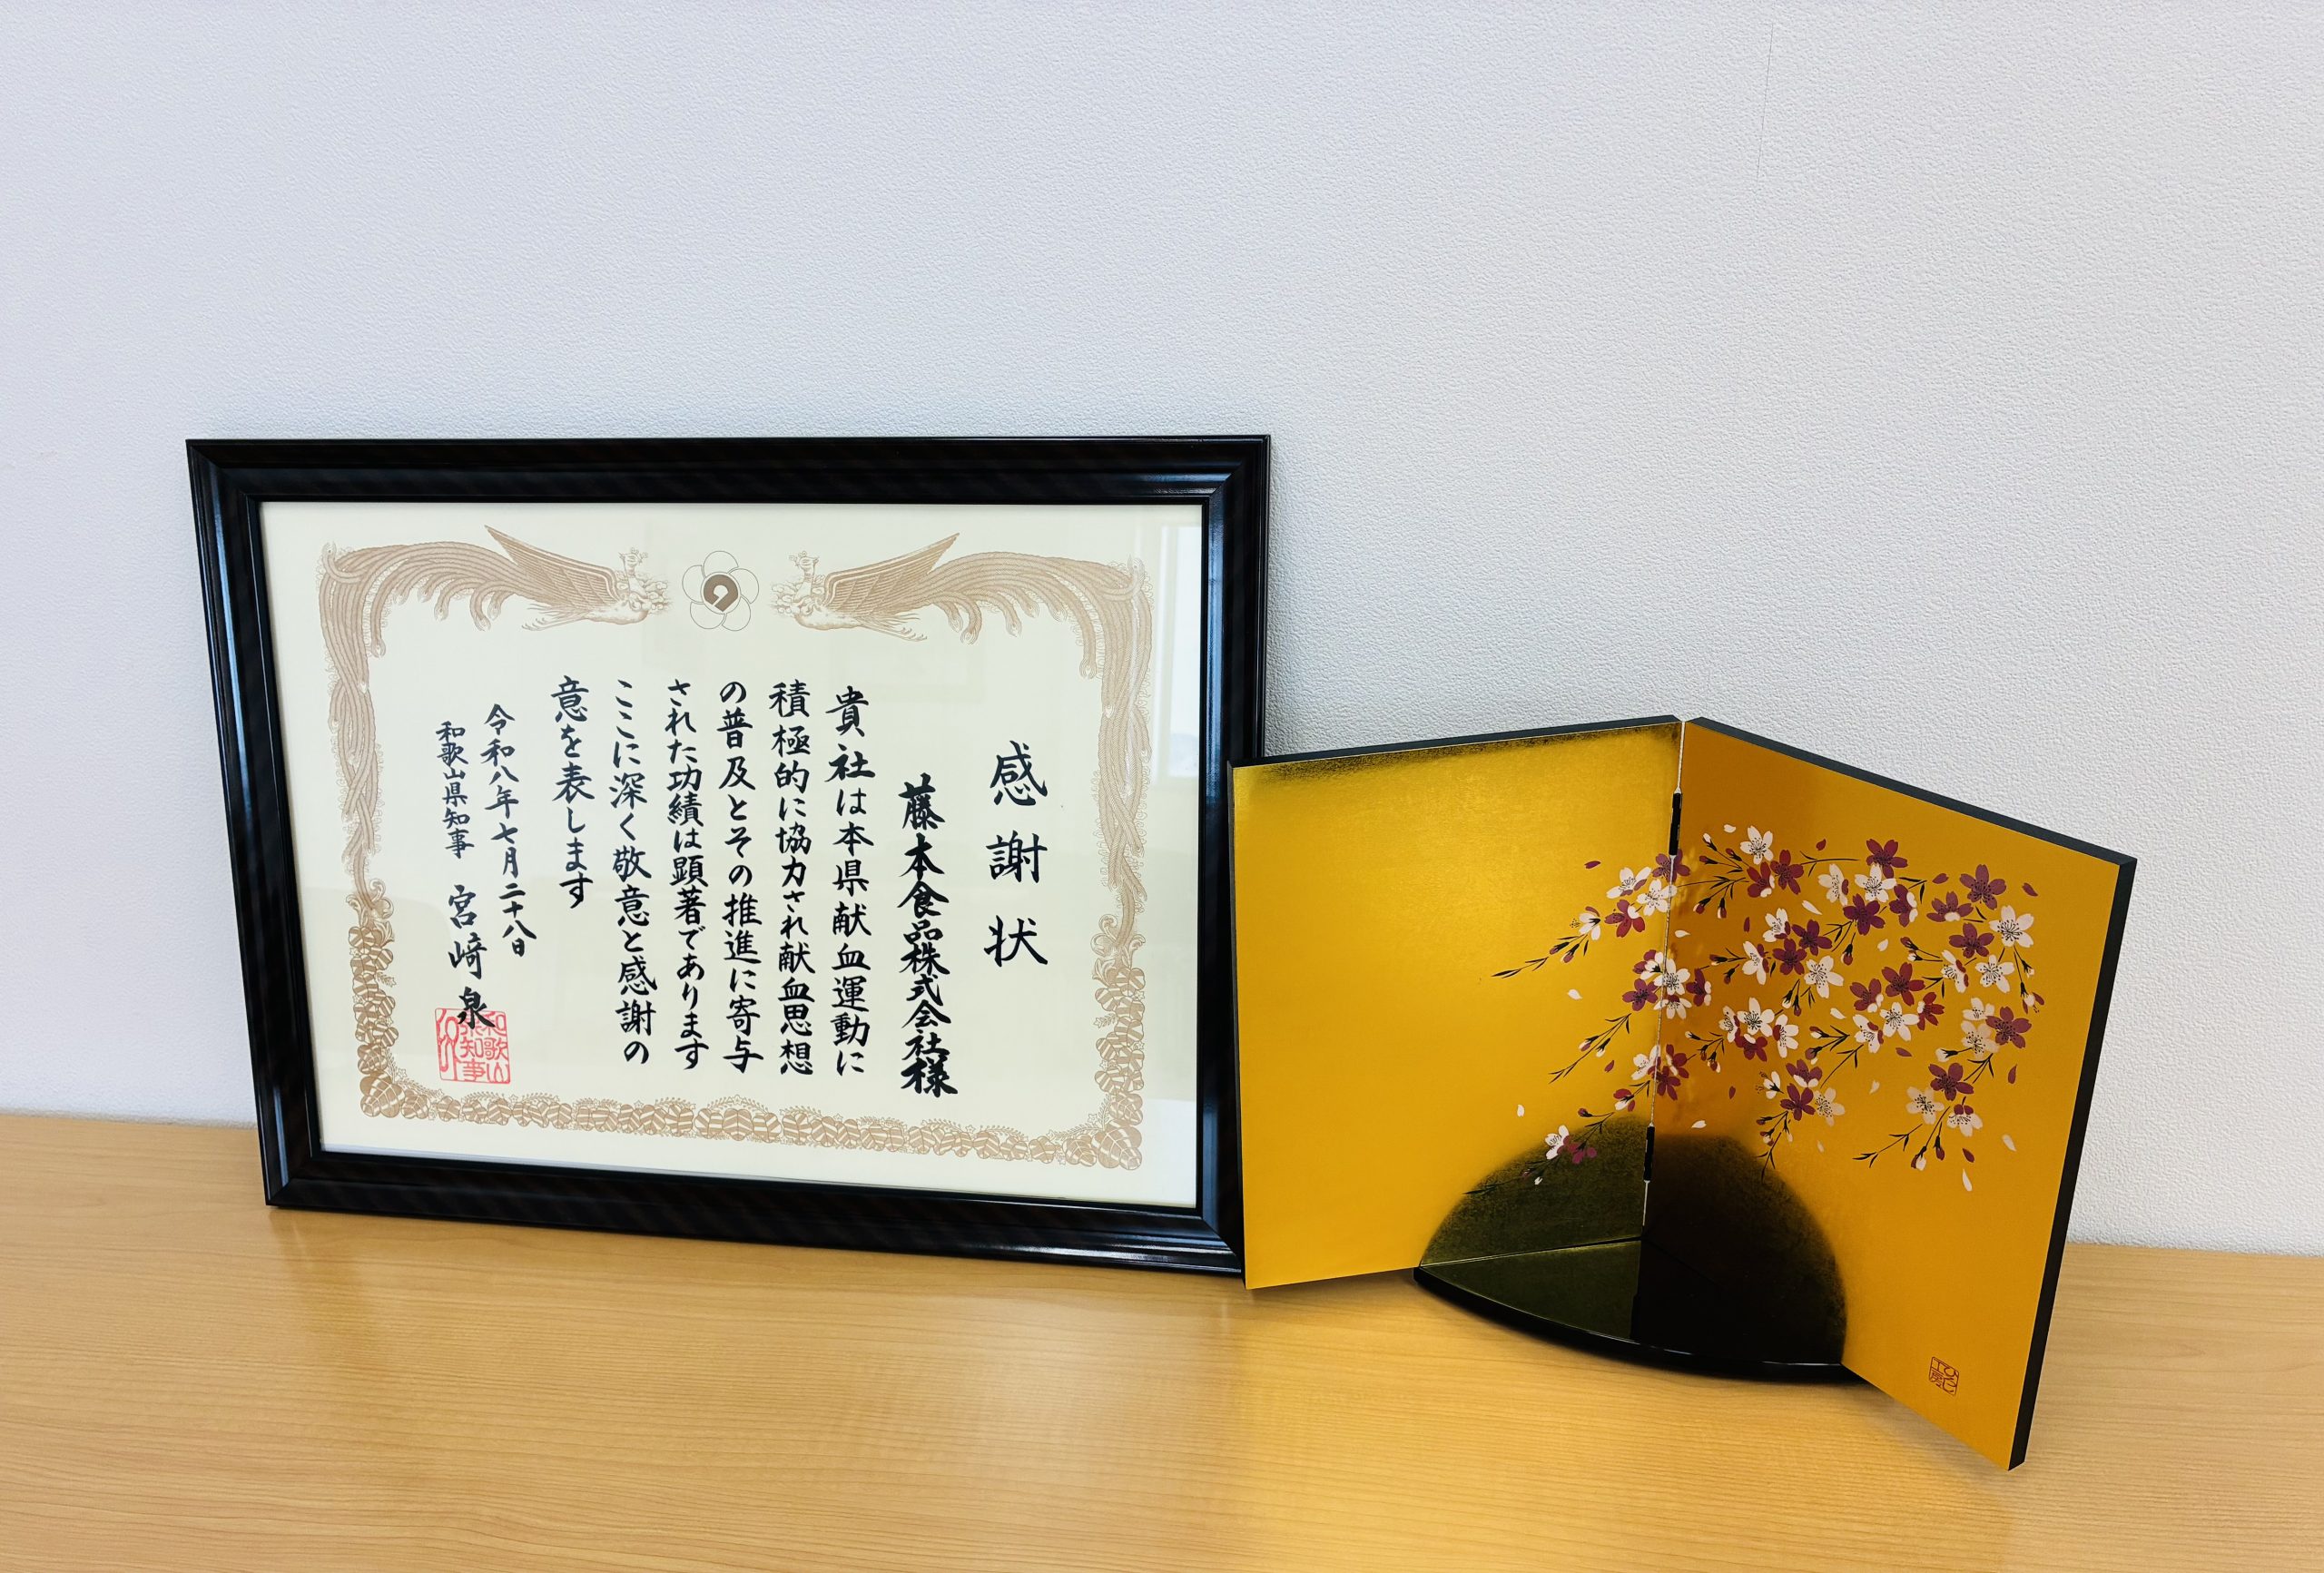 感謝状
藤本食品株式会社様
貴社は本県献血運動に
積極的に協力され献血思想
の普及とその推進に寄与
された功績は顕著であります
ここに深く敬意と感謝の
意を表します
令和八年七月二十八日
和歌山県知事 宮﨑泉